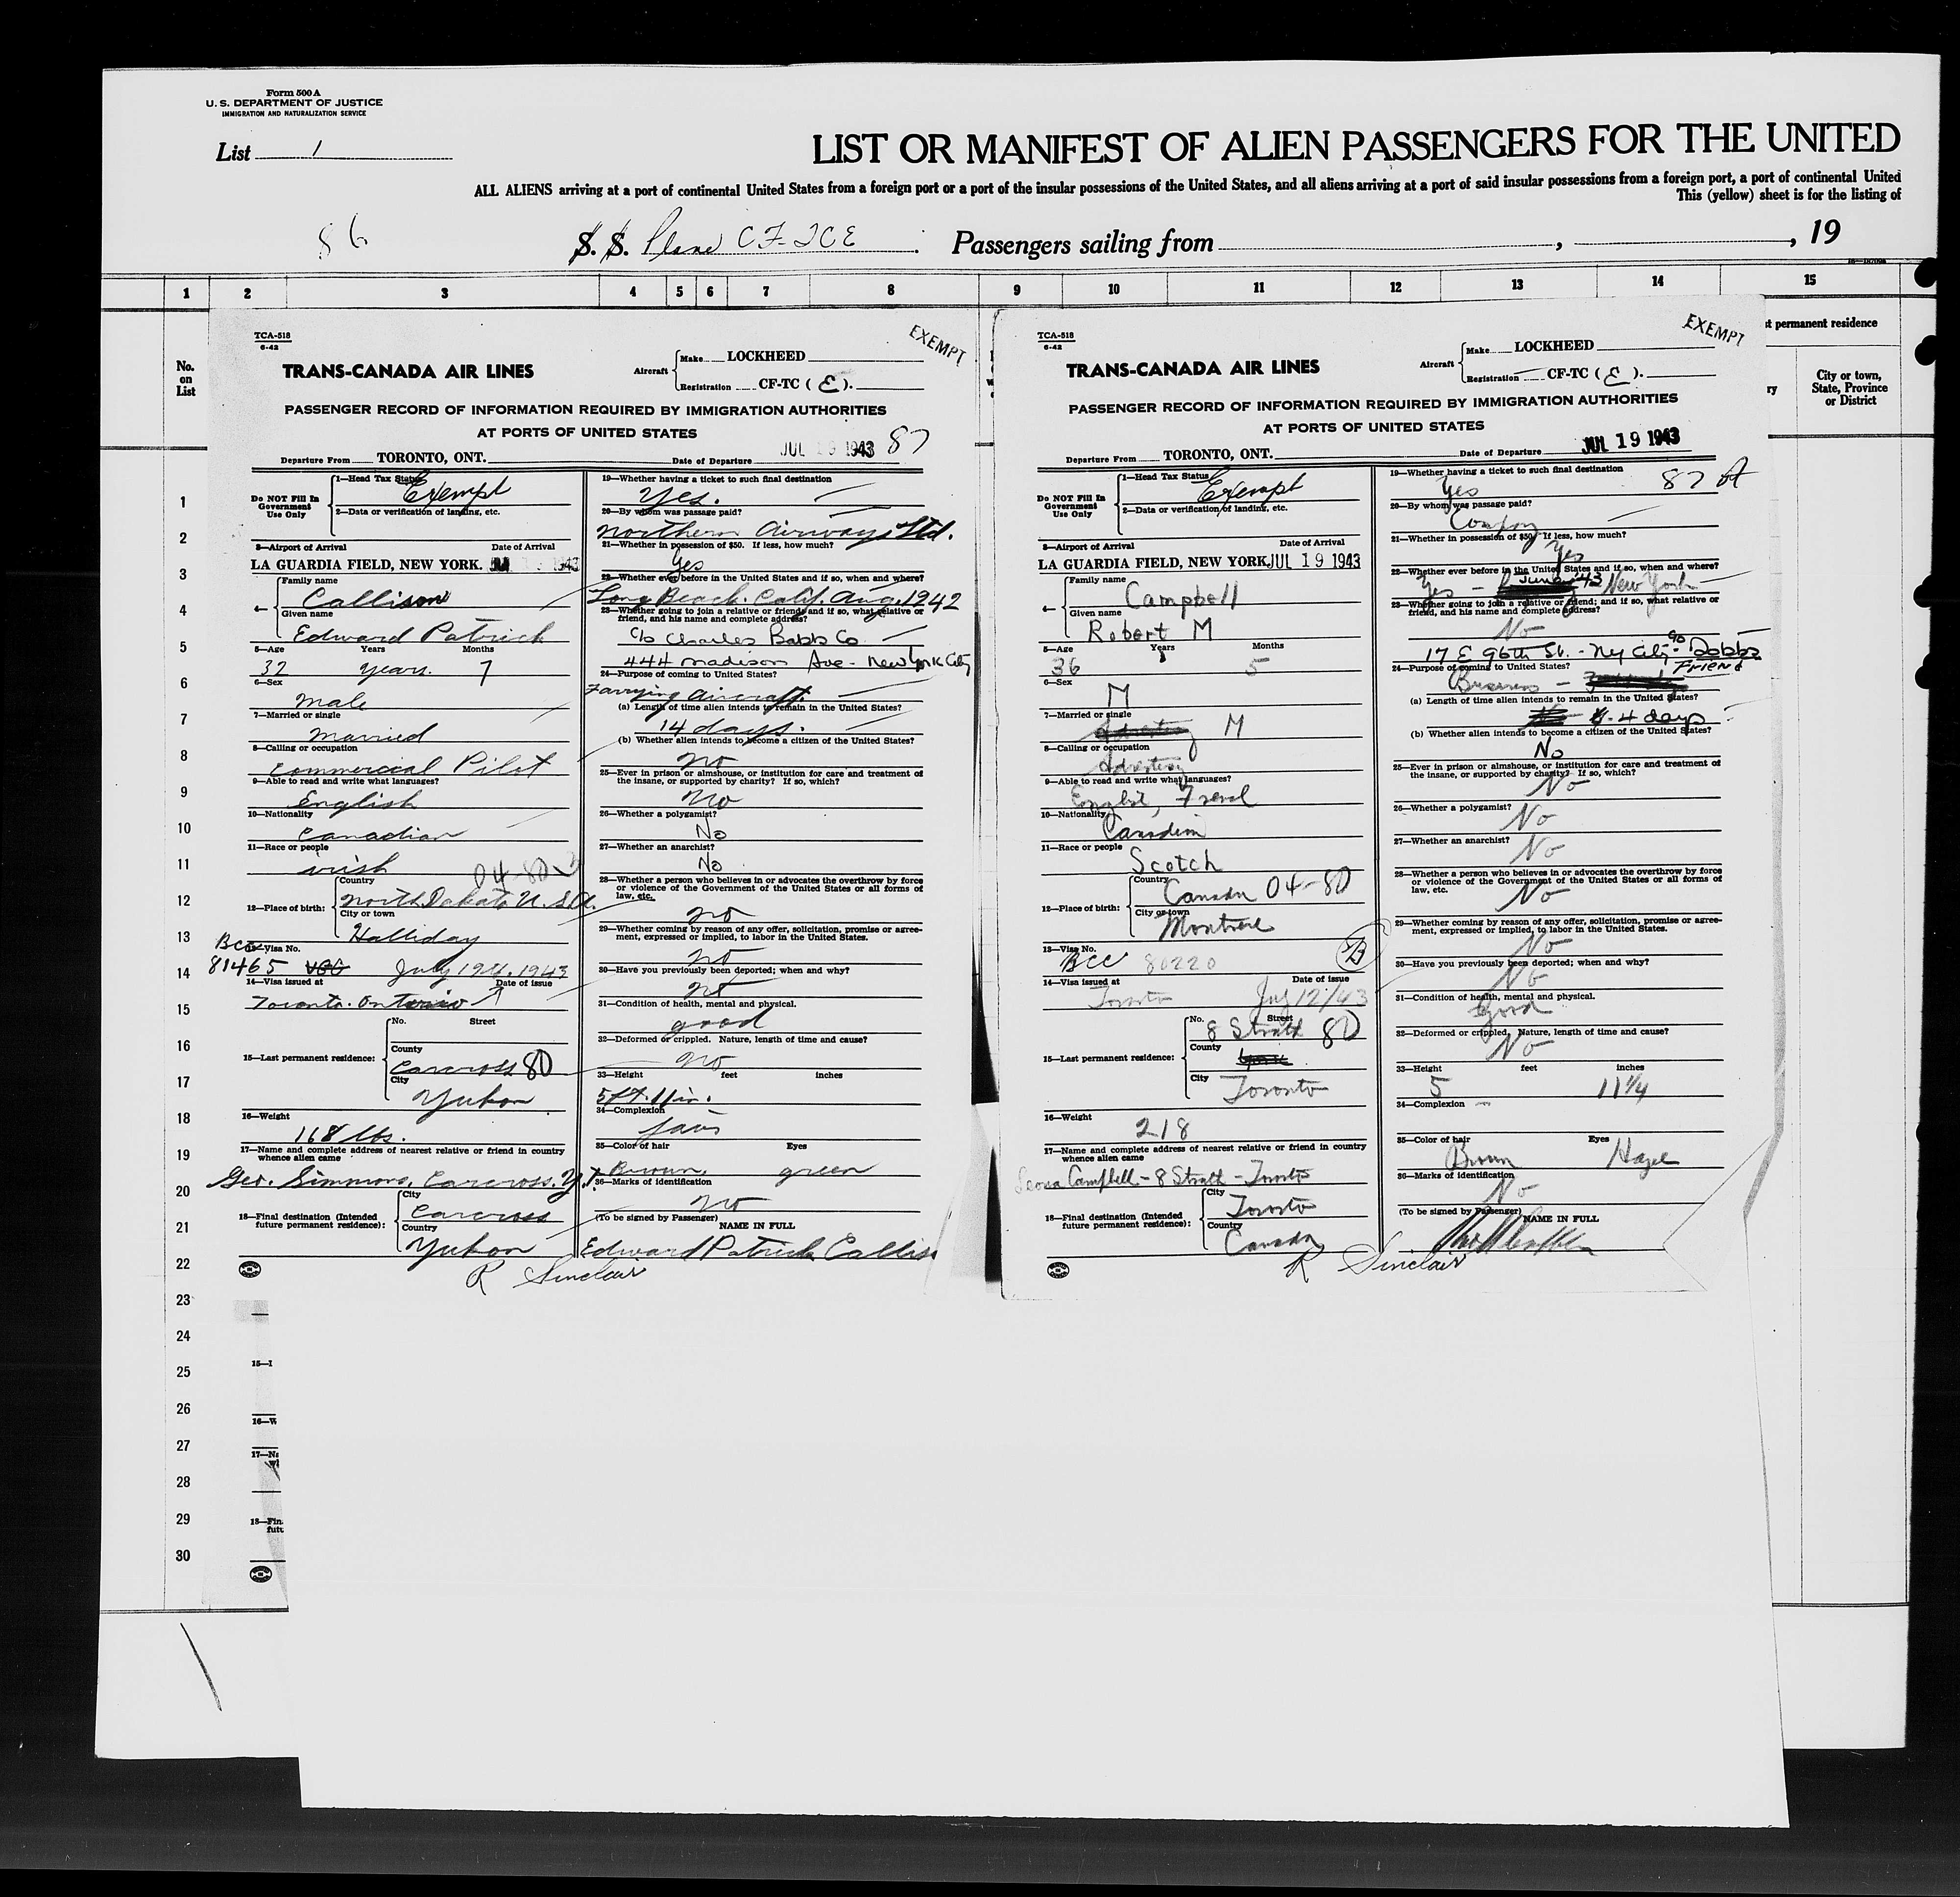 Form 500 A
U. S. DEPARTMENT OF JUSTICE
IMMIGRATION AND NATURALIZATION SERVICE
List 1
LIST OR MANIFEST OF ALIEN PASSENGERS FOR THE UNITED
ALL ALIENS arriving at a port of continental United States from a foreign port or a port of the insular possessions of the United States, and all aliens arriving at a port of said insular possessions from a foreign port, a port of continental United
This (yellow) sheet is for the listing of
86
S. S. Plane CF-TCE Passengers sailing from , , 19
1 2 3 4 5 6 7 8 9 10 11 12 13 14 15
No. on List
t permanent residence
ry
City or town, State, Province or District
1
2
3
4
5
6
7
8
9
10
11
12
13
14
15
16
17
18
19
20
21
22
23
24
25
26
27
28
29
30
TCA-518
6-42
EXEMPT
TRANS-CANADA AIR LINES
Aircraft Make LOCKHEED
Registration CF-TC ( E ).
PASSENGER RECORD OF INFORMATION REQUIRED BY IMMIGRATION AUTHORITIES
AT PORTS OF UNITED STATES
JUL 19 1943 87
Departure From TORONTO, ONT. Date of Departure
Do NOT Fill In Government Use Only
1—Head Tax Status Exempt
2—Data or verification of landing, etc.
3—Airport of Arrival Date of Arrival
LA GUARDIA FIELD, NEW YORK. JUL 19 1943
4— Family name
Callison
Given name
Edward Patrick
5—Age Years Months
32 years. 7
6—Sex
male
7—Married or single
married
8—Calling or occupation
commercial Pilot
9—Able to read and write what languages?
English
10—Nationality
Canadian
11—Race or people
irish 04-80
12—Place of birth: Country
North Dakota U.S.A.
City or town
Halliday
BCC 13—Visa No.
81465 July 19th. 1943
14—Visa issued at Date of issue
Toronto. Ontario
15—Last permanent residence: No. Street
County
Carcross 80
City
Yukon
16—Weight
168 lbs.
17—Name and complete address of nearest relative or friend in country whence alien came
Geo. Simmons, Carcross. Y.T
18—Final destination (Intended future permanent residence): City
Carcross
Country
Yukon
19—Whether having a ticket to such final destination
Yes.
20—By whom was passage paid?
Northern Airways Ltd.
21—Whether in possession of $50. If less, how much?
Yes
22—Whether ever before in the United States and if so, when and where?
Long Beach. Calif. Aug. 1942
23—Whether going to join a relative or friend; and if so, what relative or friend, and his name and complete address?
c/o Charles Babb Co
444 Madison Ave - New York City
24—Purpose of coming to United States?
Farrying aircraft.
(a) Length of time alien intends to remain in the United States?
14 days.
(b) Whether alien intends to become a citizen of the United States?
no
25—Ever in prison or almshouse, or institution for care and treatment of the insane, or supported by charity? If so, which?
no
26—Whether a polygamist?
No
27—Whether an anarchist?
No
28—Whether a person who believes in or advocates the overthrow by force or violence of the Government of the United States or all forms of law, etc.
no
29—Whether coming by reason of any offer, solicitation, promise or agreement, expressed or implied, to labor in the United States.
no
30—Have you previously been deported; when and why?
no
31—Condition of health, mental and physical.
good
32—Deformed or crippled. Nature, length of time and cause?
no
33—Height feet inches
5 ft. 11 in.
34—Complexion
fair
35—Color of hair Eyes
Brown green
36—Marks of identification
no
(To be signed by Passenger) NAME IN FULL
Edward Patrick Callison
R Sinclair
TCA-518
6-42
EXEMPT
TRANS-CANADA AIR LINES
Aircraft Make LOCKHEED
Registration CF-TC ( E ).
PASSENGER RECORD OF INFORMATION REQUIRED BY IMMIGRATION AUTHORITIES
AT PORTS OF UNITED STATES
JUL 19 1943
Departure From TORONTO, ONT. Date of Departure
Do NOT Fill In Government Use Only
1—Head Tax Status Exempt
2—Data or verification of landing, etc.
3—Airport of Arrival Date of Arrival
LA GUARDIA FIELD, NEW YORK, JUL 19 1943
4— Family name
Campbell
Given name
Robert M
5—Age Years Months
36 5
6—Sex
M
7—Married or single
M
8—Calling or occupation
Advertising
9—Able to read and write what languages?
English, French
10—Nationality
Canadian
11—Race or people
Scotch
12—Place of birth: Country
Canada 04-80
City or town
Montreal
13—Visa No.
BCC 80220 B
14—Visa issued at Date of issue
Toronto July 12/43
15—Last permanent residence: No. Street
8 Strath 80
County
City
Toronto
16—Weight
218
17—Name and complete address of nearest relative or friend in country whence alien came
Leona Campbell - 8 Strath - Toronto
18—Final destination (Intended future permanent residence): City
Toronto
Country
Canada
19—Whether having a ticket to such final destination
Yes 87 A
20—By whom was passage paid?
Company
21—Whether in possession of $50. If less, how much?
Yes
22—Whether ever before in the United States and if so, when and where?
Yes - June '43 New York
23—Whether going to join a relative or friend; and if so, what relative or friend, and his name and complete address?
No
17 E 96th St. - Ny City c/o Dobbs
Friend
24—Purpose of coming to United States?
Business -
(a) Length of time alien intends to remain in the United States?
4 days
(b) Whether alien intends to become a citizen of the United States?
No
25—Ever in prison or almshouse, or institution for care and treatment of the insane, or supported by charity? If so, which?
No
26—Whether a polygamist?
No
27—Whether an anarchist?
No
28—Whether a person who believes in or advocates the overthrow by force or violence of the Government of the United States or all forms of law, etc.
No
29—Whether coming by reason of any offer, solicitation, promise or agreement, expressed or implied, to labor in the United States.
No
30—Have you previously been deported; when and why?
No
31—Condition of health, mental and physical.
Good
32—Deformed or crippled. Nature, length of time and cause?
No
33—Height feet inches
5 11 1/4
34—Complexion
35—Color of hair Eyes
Brown Hazel
36—Marks of identification
No
(To be signed by Passenger) NAME IN FULL
R Sinclair
15—I
16—W
17—Na
wl
18—Fin
futu